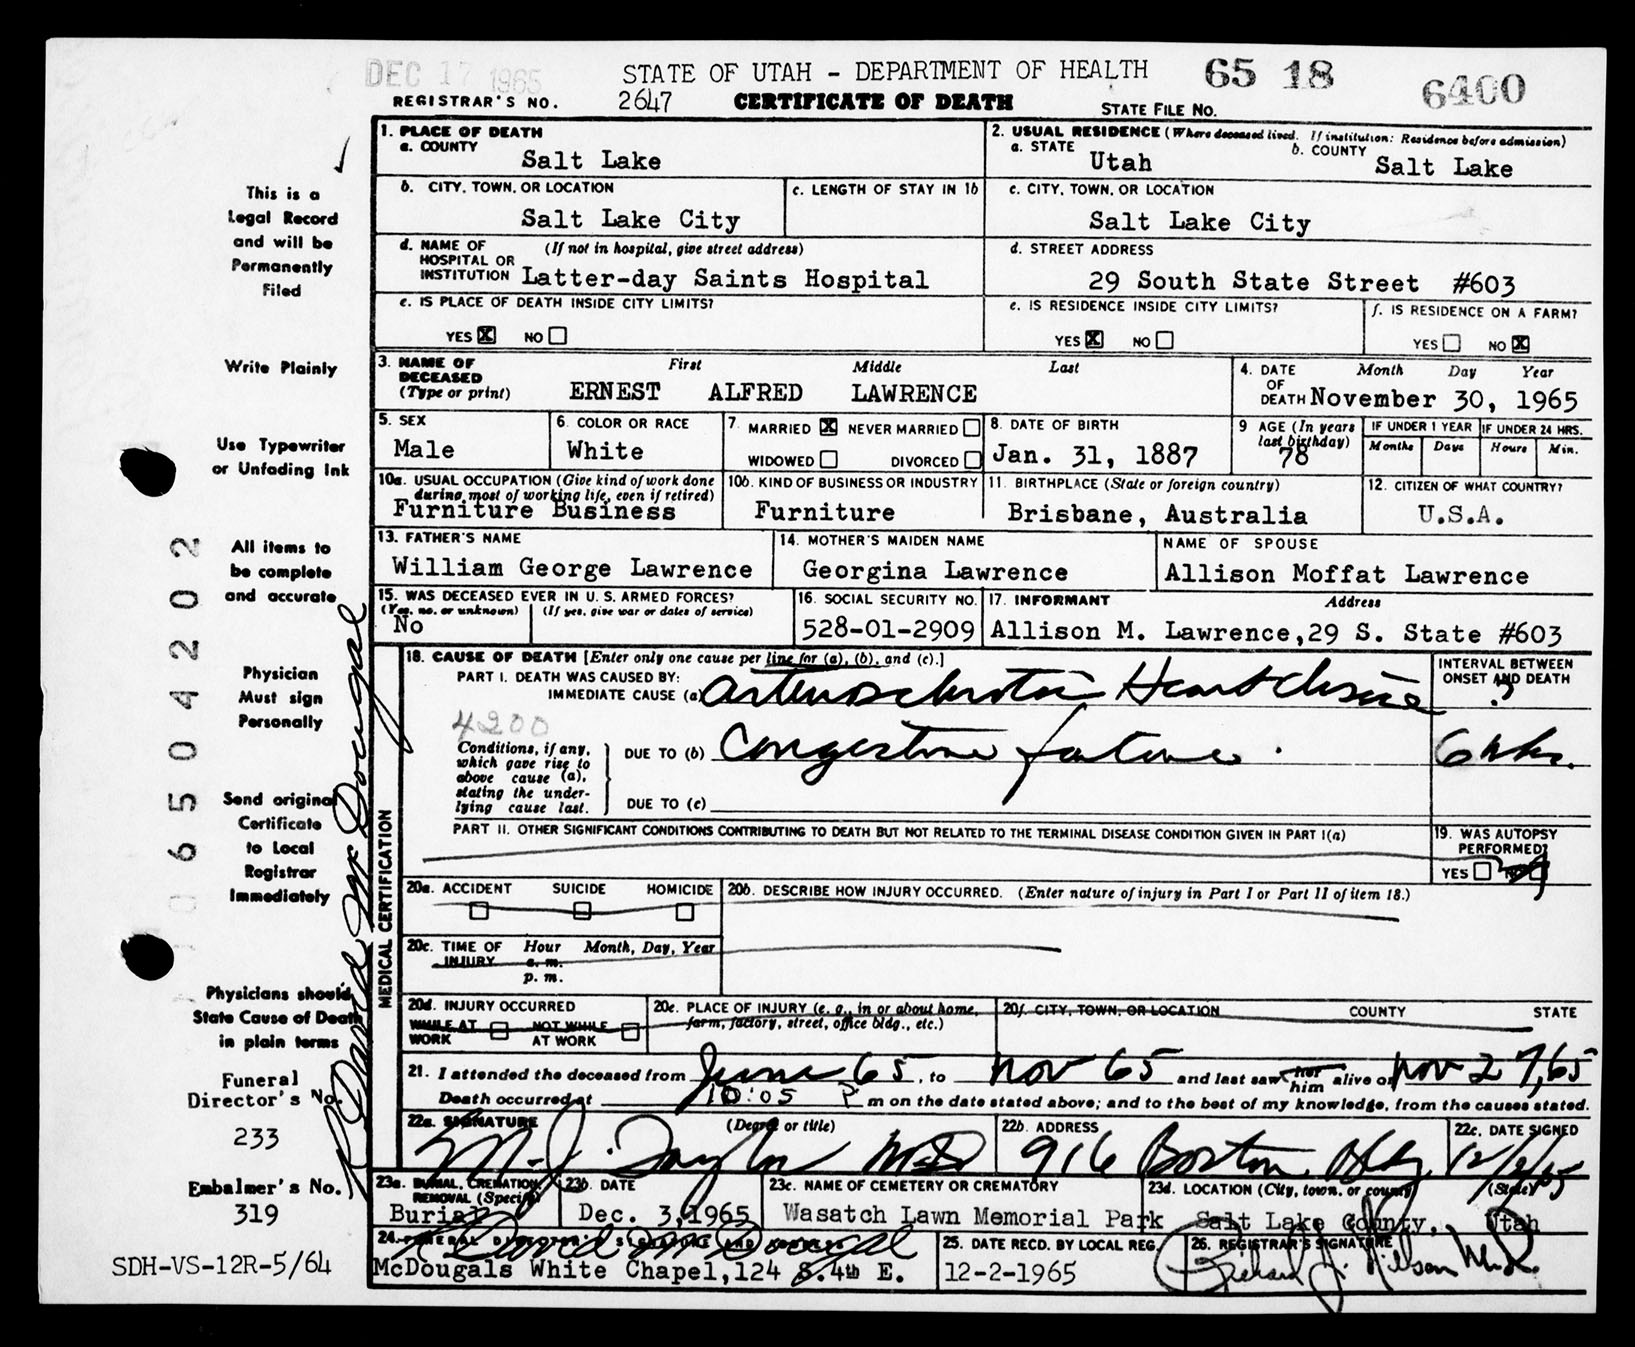 DEC 17 1965
STATE OF UTAH - DEPARTMENT OF HEALTH
65 18 6400
REGISTRAR'S NO. 2647 CERTIFICATE OF DEATH STATE FILE NO.
1. PLACE OF DEATH
a. COUNTY Salt Lake
2. USUAL RESIDENCE (Where deceased lived. If institution: Residence before admission)
a. STATE Utah b. COUNTY Salt Lake
b. CITY, TOWN, OR LOCATION Salt Lake City
c. LENGTH OF STAY IN 1b
c. CITY, TOWN, OR LOCATION Salt Lake City
d. NAME OF HOSPITAL OR INSTITUTION (If not in hospital, give street address) Latter-day Saints Hospital
d. STREET ADDRESS 29 South State Street #603
e. IS PLACE OF DEATH INSIDE CITY LIMITS?
YES X NO
e. IS RESIDENCE INSIDE CITY LIMITS?
YES X NO
f. IS RESIDENCE ON A FARM?
YES NO X
3. NAME OF DECEASED (Type or print) First Middle Last
ERNEST ALFRED LAWRENCE
4. DATE OF DEATH Month Day Year
November 30, 1965
5. SEX Male
6. COLOR OR RACE White
7. MARRIED X NEVER MARRIED
WIDOWED DIVORCED
8. DATE OF BIRTH Jan. 31, 1887
9 AGE (In years last birthday) 78
IF UNDER 1 YEAR Months Days
IF UNDER 24 HRS. Hours Min.
10a. USUAL OCCUPATION (Give kind of work done during most of working life, even if retired)
Furniture Business
10b. KIND OF BUSINESS OR INDUSTRY Furniture
11. BIRTHPLACE (State or foreign country) Brisbane, Australia
12. CITIZEN OF WHAT COUNTRY? U.S.A.
13. FATHER'S NAME William George Lawrence
14. MOTHER'S MAIDEN NAME Georgina Lawrence
NAME OF SPOUSE Allison Moffat Lawrence
15. WAS DECEASED EVER IN U.S. ARMED FORCES?
(Yes, no. or unknown) (If yes, give war or dates of service)
No
16. SOCIAL SECURITY NO. 528-01-2909
17. INFORMANT Address
Allison M. Lawrence,29 S. State #603
18. CAUSE OF DEATH [Enter only one cause per line for (a), (b), and (c).]
PART I. DEATH WAS CAUSED BY:
IMMEDIATE CAUSE (a) Arteriosclerotic Heart disease
INTERVAL BETWEEN ONSET AND DEATH
?
4200
Conditions, if any, which gave rise to above cause (a), stating the underlying cause last.
DUE TO (b) Congestive failure. 6 wks.
DUE TO (c)
PART II. OTHER SIGNIFICANT CONDITIONS CONTRIBUTING TO DEATH BUT NOT RELATED TO THE TERMINAL DISEASE CONDITION GIVEN IN PART I(a)
19. WAS AUTOPSY PERFORMED?
YES NO
MEDICAL CERTIFICATION
20a. ACCIDENT SUICIDE HOMICIDE
20b. DESCRIBE HOW INJURY OCCURRED. (Enter nature of injury in Part I or Part II of item 18.)
20c. TIME OF INJURY Hour Month, Day, Year
a.m.
p.m.
20d. INJURY OCCURRED
WHILE AT WORK NOT WHILE AT WORK
20e. PLACE OF INJURY (e. g., in or about home, farm, factory, street, office bldg., etc.)
20f. CITY, TOWN, OR LOCATION COUNTY STATE
21. I attended the deceased from June 65, to Nov 65 and last saw her him alive on Nov 27, 65
Death occurred at 10:05 P m on the date stated above; and to the best of my knowledge, from the causes stated.
22a. SIGNATURE (Degree or title)
M. J. Taylor MD
22b. ADDRESS 916 Boston Bldg.
22c. DATE SIGNED 12/2/65
23a. BURIAL, CREMATION REMOVAL (Specify) Burial
23b. DATE Dec. 3,1965
23c. NAME OF CEMETERY OR CREMATORY Wasatch Lawn Memorial Park
23d. LOCATION (City, town. or county) (State)
Salt Lake County, Utah
24. FUNERAL DIRECTOR'S SIGNATURE AND ADDRESS
R David McDougal
McDougals White Chapel,124 S.4th E.
25. DATE RECD. BY LOCAL REG. 12-2-1965
26. REGISTRAR'S SIGNATURE
Richard J. Nilson M.D.
This is a
Legal Record
and will be
Permanently
Filed
Write Plainly
Use Typewriter
or Unfading Ink
All items to
be complete
and accurate
Physician
Must sign
Personally
Send original
Certificate
to Local
Registrar
Immediately
Physicians should
State Cause of Death
in plain terms
Funeral
Director's No.
233
Embalmer's No.
319
SDH-VS-12R-5/64
R David McDougal
106504202